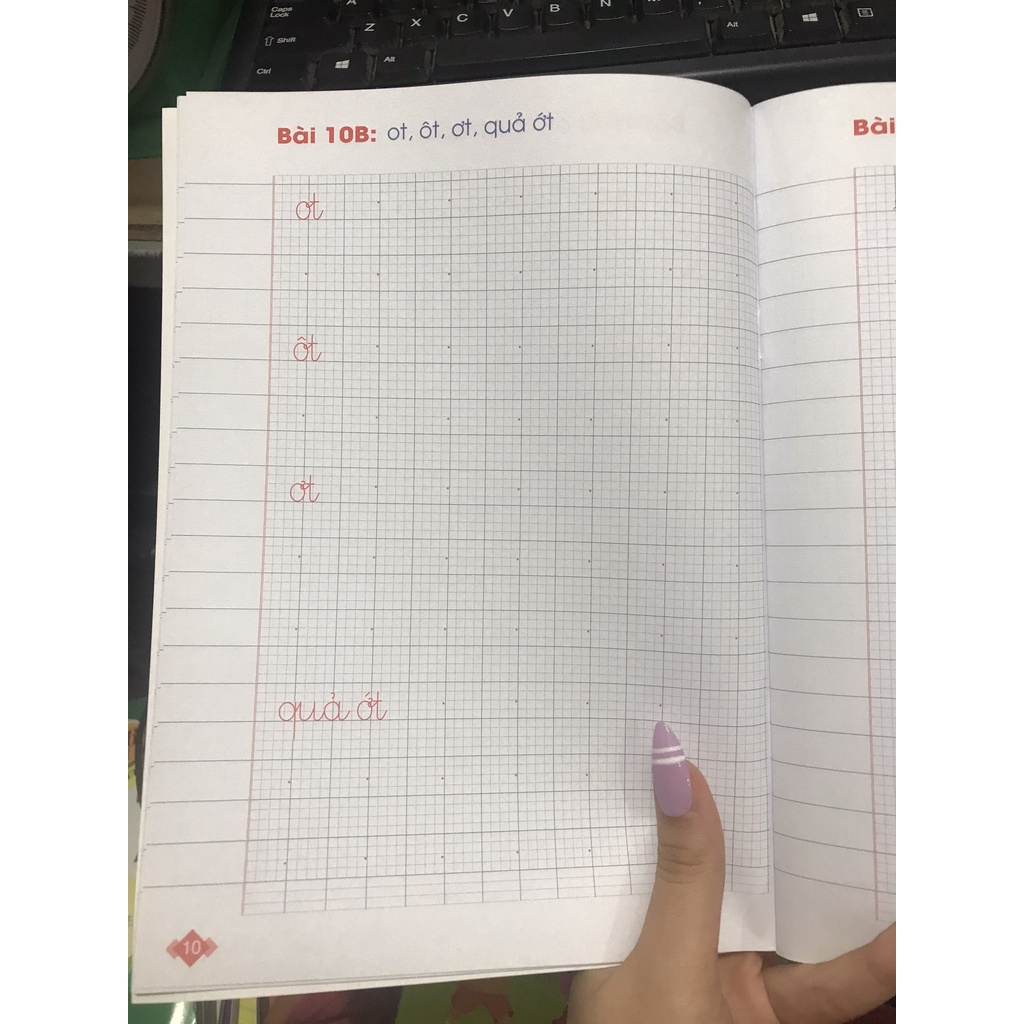 Caps Lock
Z X C V B N
Shift
Alt
Alt
Ctrl
Bài 10B: ot, ôt, ơt, quả ớt
ot
ôt
ơt
quả ớt
10
Bài